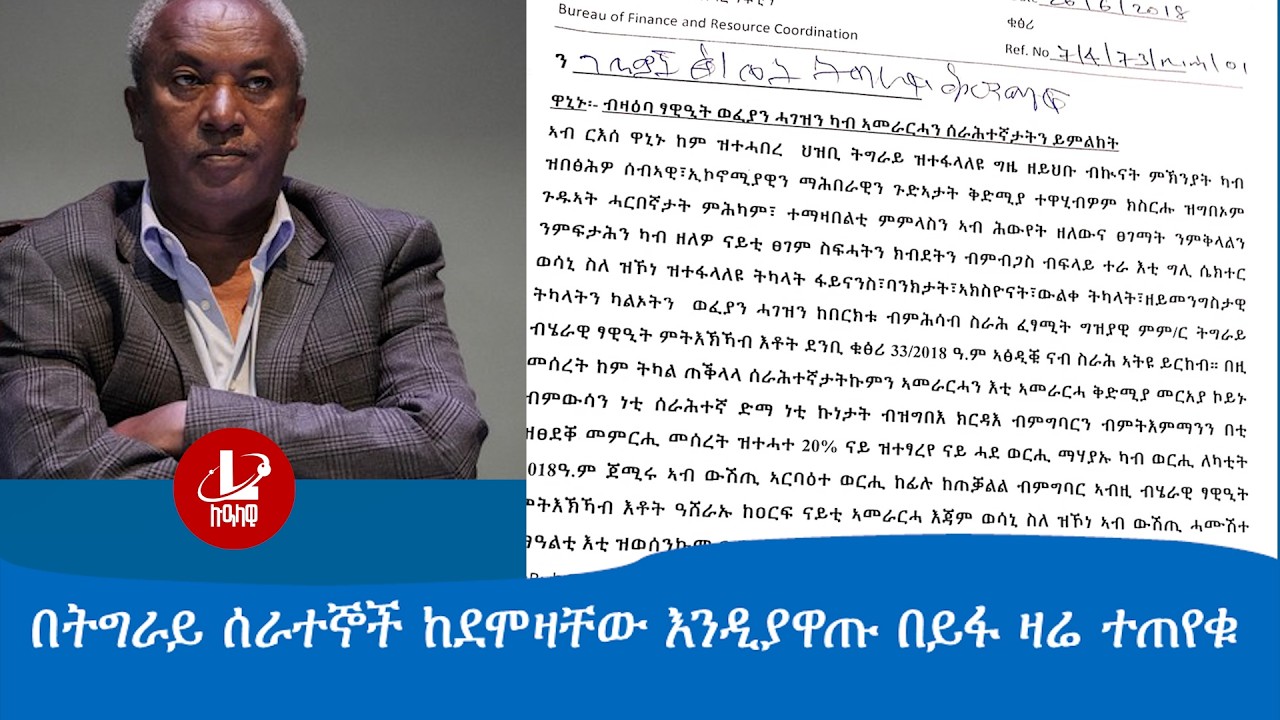 26/6/2018
Bureau of Finance and Resource Coordination
ቁፅሪ
Ref. No
ን
ዋኒኑ፡- ብዛዕባ ፃዊዒት ወፊያን ሓገዝን ካብ ኣመራርሓን ሰራሕተኛታትን ይምልከት
ኣብ ርእሰ ዋኒኑ ከም ዝተሓበረ ህዝቢ ትግራይ ዝተፋላለዩ ግዜ ዘይህቡ ብኩናት ምኽንያት ካብ
ዝበፅሕዎ ሰብኣዊ፣ኢኮኖሚያዊን ማሕበራዊን ጉድኣታት ቅድሚያ ተዋሂብዎም ክስርሑ ዝግበኦም
ጉዱኣት ሓርበኛታት ምሕካም፣ ተማዛበልቲ ምምላስን ኣብ ሕውየት ዘለውና ፀገማት ንምቅላልን
ንምፍታሕን ካብ ዘለዎ ናይቲ ፀገም ስፍሓትን ክብደትን ብምብጋስ ብፍላይ ተራ እቲ ግሊ ሴክተር
ወሳኒ ስለ ዝኾነ ዝተፋላለዩ ትካላት ፋይናንስ፣ባንክታት፣ኣክስዮናት፣ውልቀ ትካላት፣ዘይመንግስታዊ
ትካላትን ካልኦትን ወፊያን ሓገዝን ከበርክቱ ብምሕሳብ ስራሕ ፈፃሚት ግዝያዊ ምም/ር ትግራይ
ብሄራዊ ፃዊዒት ምትእኽኻብ እቶት ደንቢ ቁፅሪ 33/2018 ዓ.ም ኣፅዲቑ ናብ ስራሕ ኣትዩ ይርከብ። በዚ
መሰረት ከም ትካል ጠቕላላ ሰራሕተኛታትኩምን ኣመራርሓን እቲ ኣመራርሓ ቅድሚያ መርኣያ ኮይኑ
ብምውሳን ነቲ ሰራሕተኛ ድማ ነቲ ኩነታት ብዝግበእ ክርዳእ ብምግባርን ብምትእምማንን በቲ
ዝፀደቐ መምርሒ መሰረት ዝተሓተ 20% ናይ ዝተፃረየ ናይ ሓደ ወርሒ ማሃያኡ ካብ ወርሒ ለካቲት
2018ዓ.ም ጀሚሩ ኣብ ውሽጢ ኣርባዕተ ወርሒ ከፊሉ ከጠቓልል ብምግባር ኣብዚ ብሄራዊ ፃዊዒት
ምትእኽኻብ እቶት ዓሸራኡ ከዐርፍ ናይቲ ኣመራርሓ እጃም ወሳኒ ስለ ዝኾነ ኣብ ውሽጢ ሓሙሽተ
ማዓልቲ እቲ ዝወሰንኩሞ
ሉዓላዊ
በትግራይ ሰራተኞች ከደሞዛቸው እንዲያዋጡ በይፋ ዛሬ ተጠየቁ